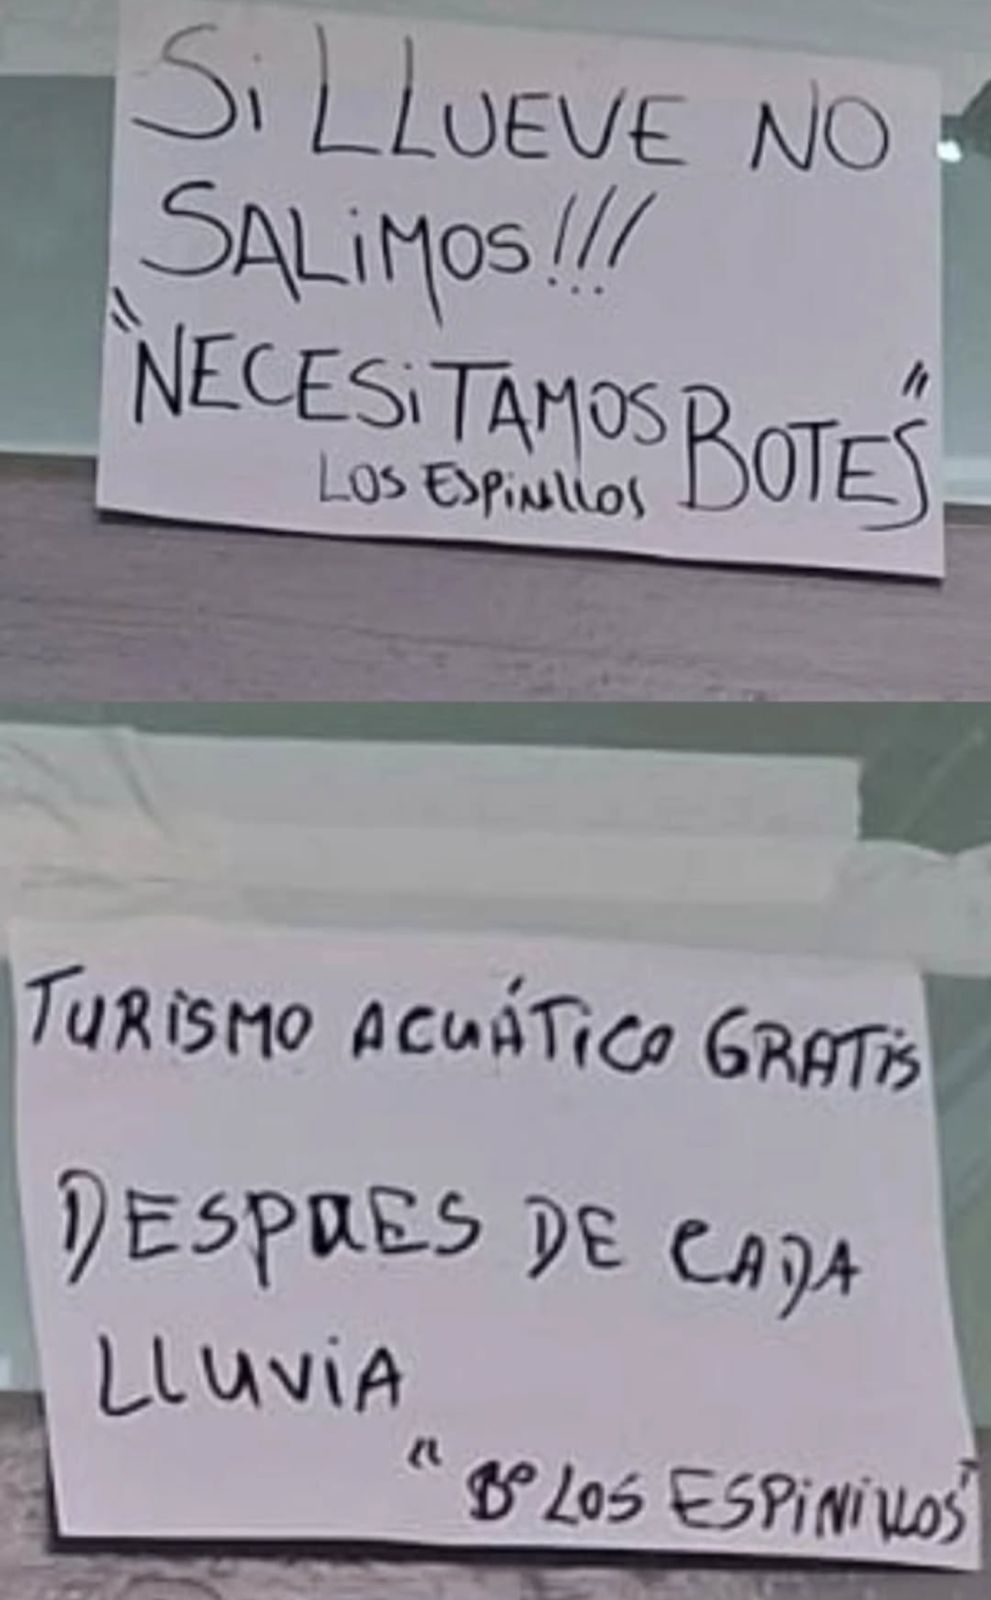 Si LLUEVE NO
SALiMOS!!!
"NECESiTAMOS BOTES"
LOS ESPiNillOS
TURiSMO ACUÁTiCO GRATis
DESPUES DE CADA
LlUViA
"Bº LOS ESPiNiLLOS"